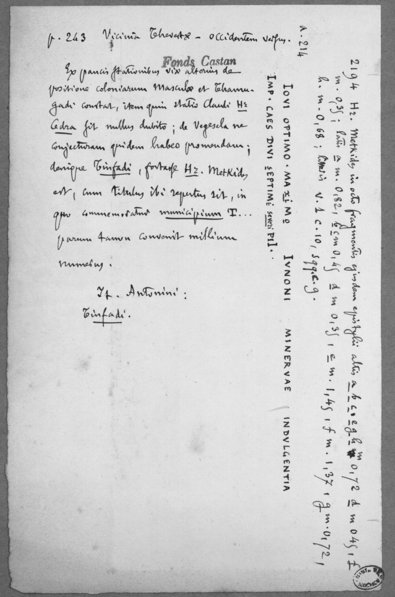 p. 243 Vicinia Thevestæ - occidentem versus.
Fonds Castan
Ex paucis stationibus vix alterius de
positione coloniarum Masculæ et Thamu-
gadi constat, item quin statio Claudi Hr
Cedra sit nullus dubito ; de Vegesela ne
conjecturam quidem habeo promendam ;
denique Tinfadi, fortasse Hr. Metkidès,
est, cum titulus ibi repertus sit, in
quo commemoratur municipium T...
parum tamen convenit millium
numerus.
It. Antonini :
Tinfadi.
a. 214
2194 Hr. Metkidès, in octo fragmentis ejusdem epistylii altis a b c e g h m 0,72 d m 0,45, f
m. 0,35, lat. a m. 0,82, b c m 0,45 d m 0,35, e m. 1,45, f m. 1,37, g m. 0,72,
h. m. 0,68 ; v. 1 c. 10, sqq. c. 9.
IOVI OPTIMO MAXIMO IVNONI MINERVAE INDVLGENTIA
IMP · CAES DIVI SEPTIMI SEVERI FIL ·